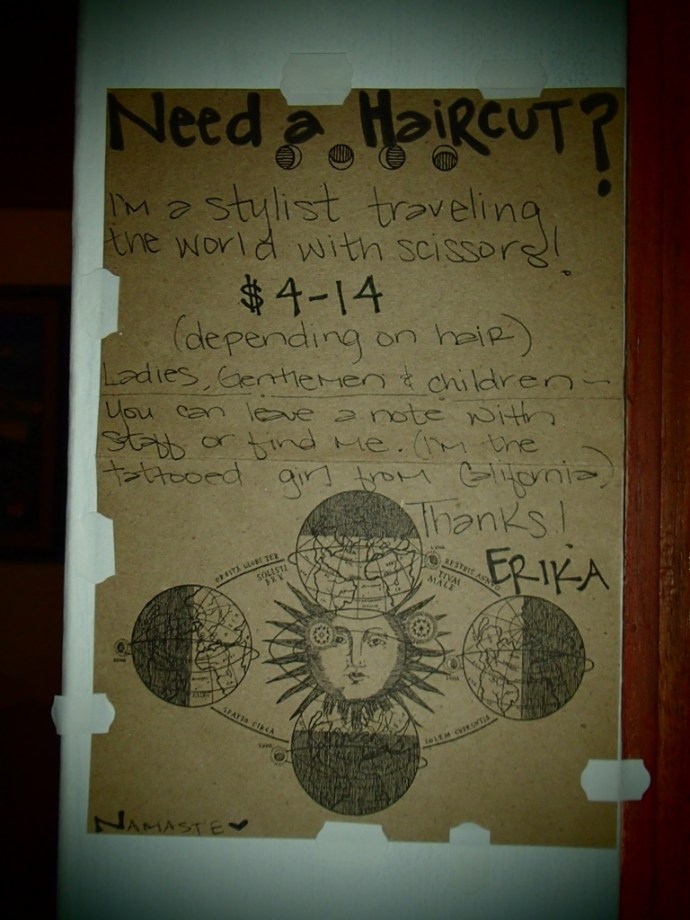 Need a HaiRCUT?
I'm a stylist traveling
the world with scissors!
$4-14
(depending on haiR)
Ladies, Gentlemen & children -
You can leave a note with
staff or find me. (I'm the
tattooed girl from California)
Thanks!
ERIKA
SOLISTI
NAMASTE